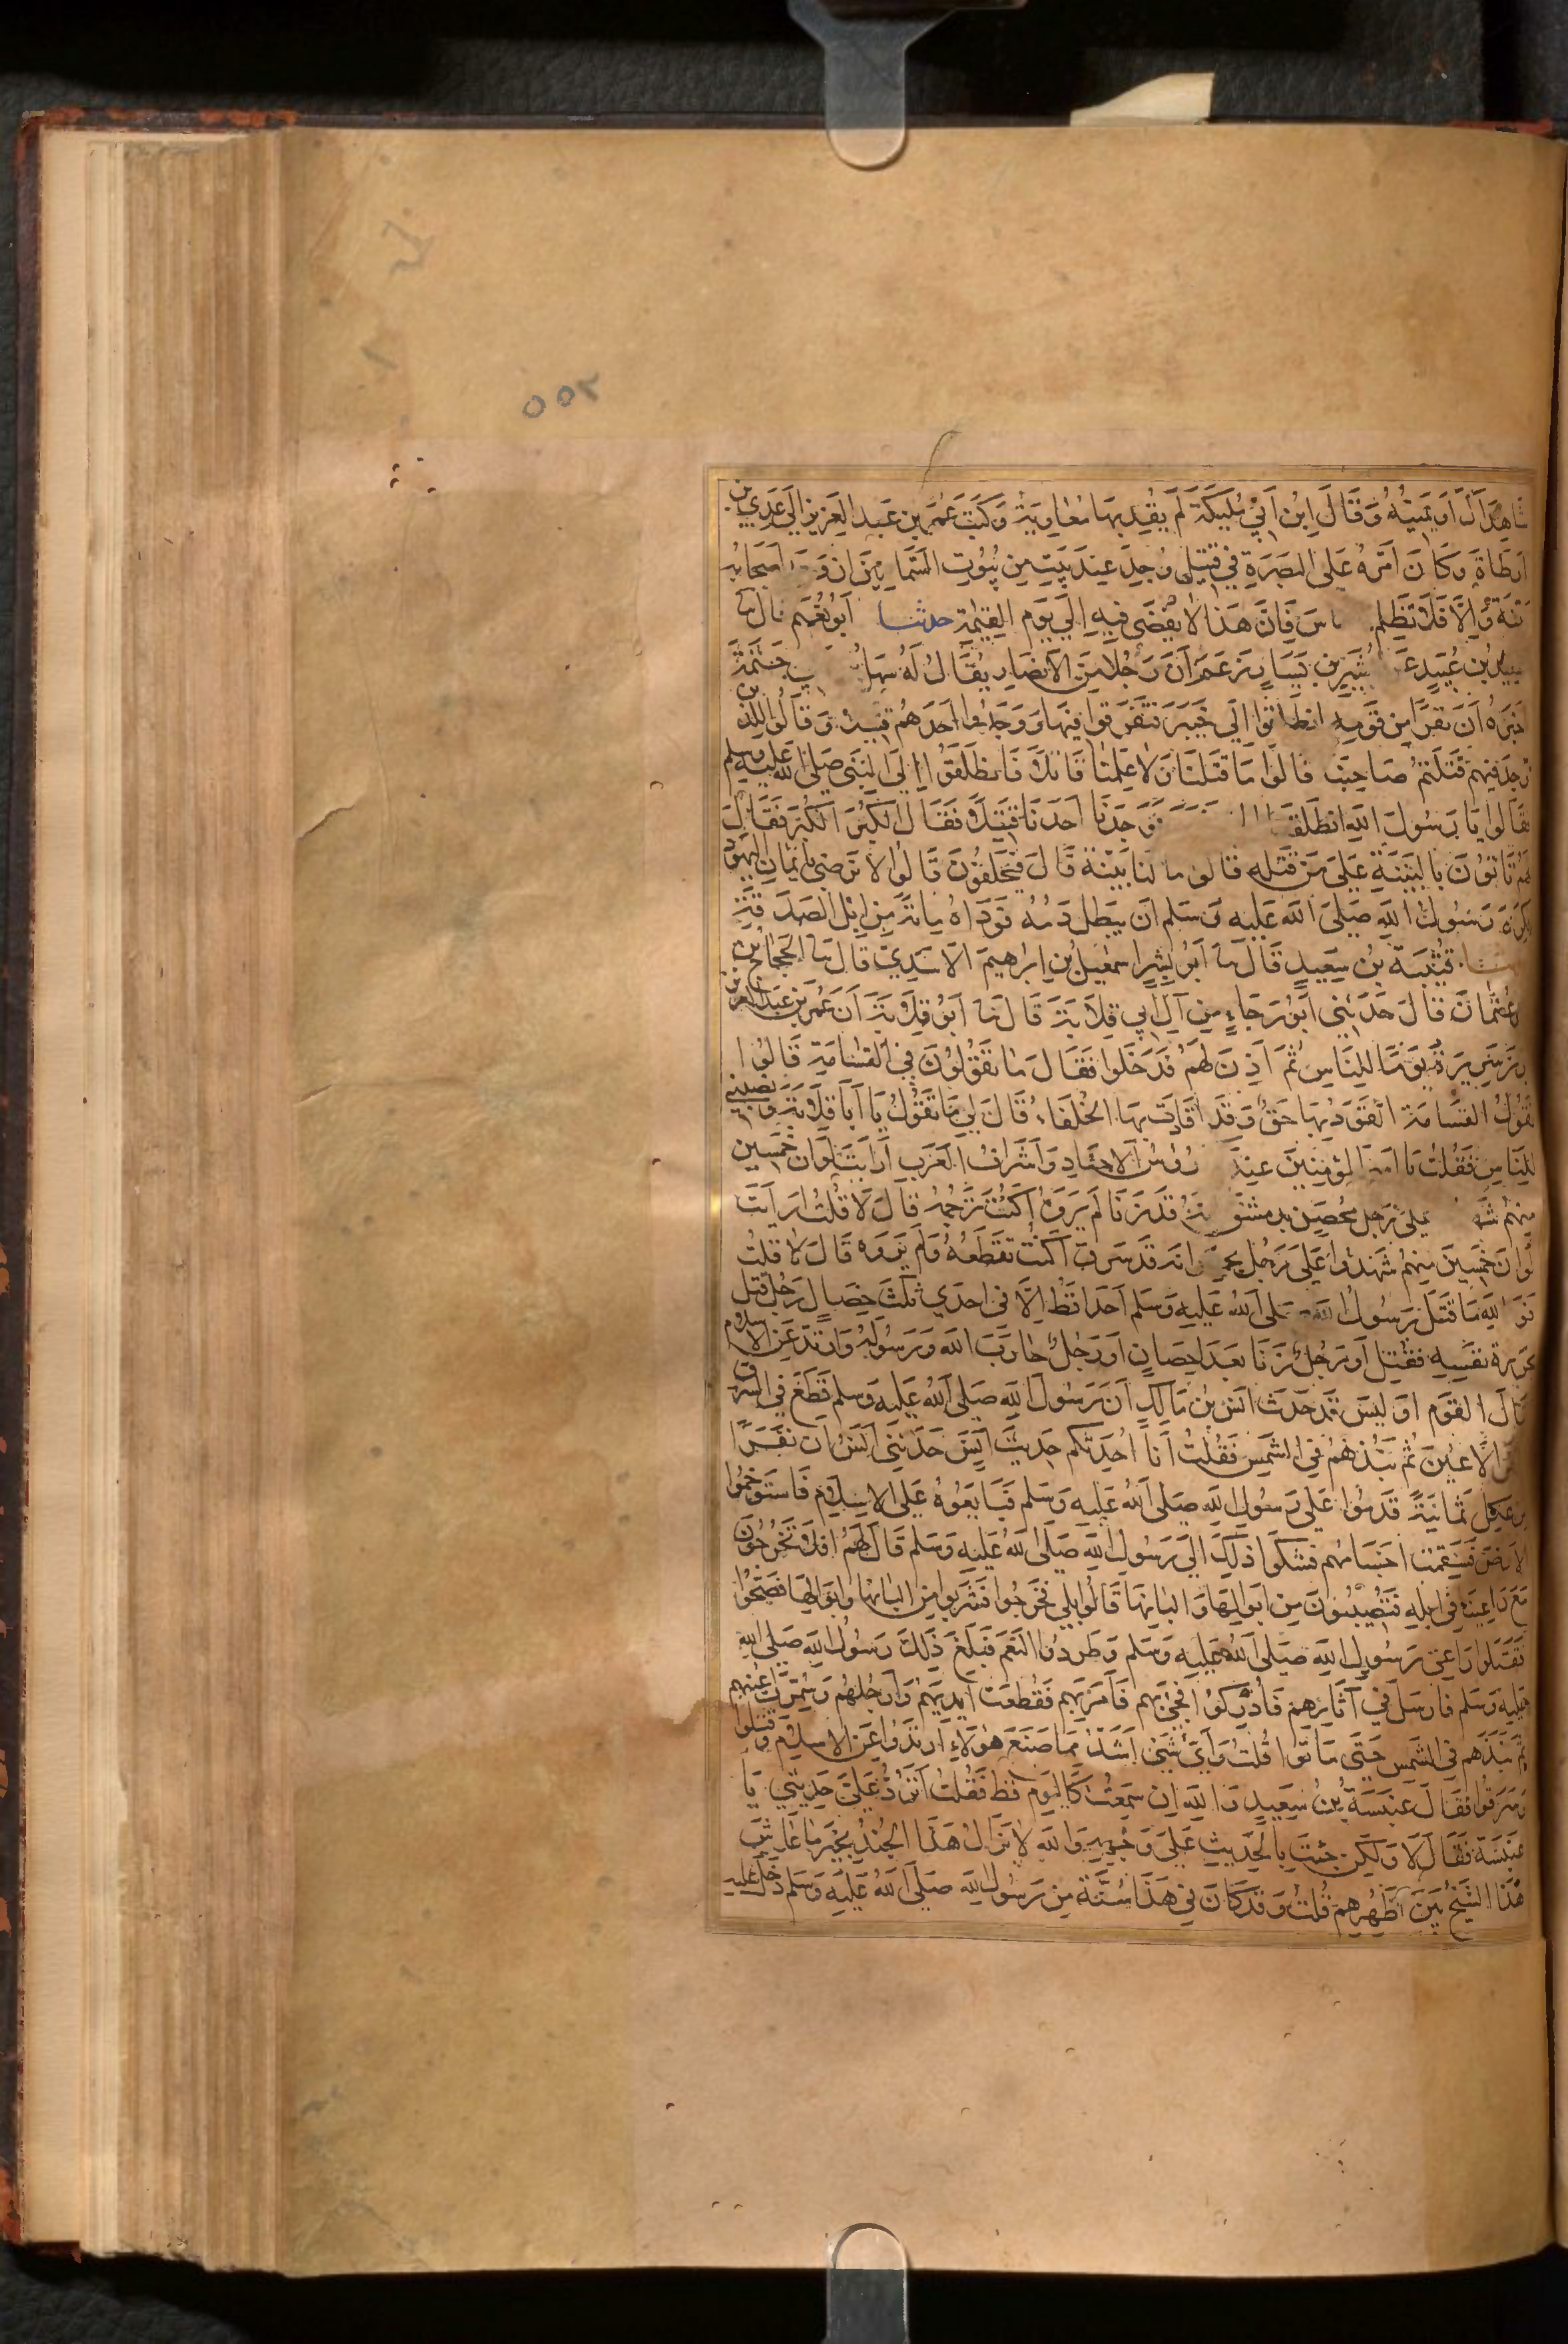 ٥٥٢
شاهداك او يمينه وقال ابن ابي مليكة لم يقد بها معاوية وكتب عمر بن عبد العزيز الي عدي بن
ارطاة وكان امره على البصرة في قتيل وجد عند بيت من بيوت السمانين ان وجد اصحابه
بينة والا فلا تظلم الناس فان هذا لا يقضى فيه الي يوم القيمة حدثنا ابو نعيم قال ثنا
سعيد بن عبيد عن بشير بن يسار زعم ان رجلا من الانصار يقال له سهل بن ابي حثمة
اخبره ان نفرا من قومه انطلقوا الي خيبر فتفرقوا فيها ووجدوا احدهم قتيلا وقالوا للذي
وجد فيهم قتلتم صاحبنا قالوا ما قتلنا ولا علمنا قاتلا فانطلقوا الي النبي صلى الله عليه وسلم
فقالوا يا رسول الله انطلقنا فوجدنا احدنا قتيلا فقال الكبر الكبر فقال
لهم تاتون بالبينة على من قتله قالوا ما لنا بينة قال فيحلفون قالوا لا نرضى بايمان اليهود
فكره رسول الله صلى الله عليه وسلم ان يبطل دمه فوداه ماية من ابل الصدقة
حدثنا قتيبة بن سعيد قال ثنا ابو بشر اسمعيل بن ابراهيم الاسدي قال ثنا الحجاج بن
ابي عثمان قال حدثني ابو رجاء من آل ابي قلابة قال ثنا ابو قلابة ان عمر بن عبد العزيز
ابرز سريره يوما للناس ثم اذن لهم فدخلوا فقال ما تقولون في القسامة قالوا
نقول القسامة القود بها حق وقد اقادت بها الخلفاء قال لي ما تقول يا ابا قلابة ونصبني
للناس فقلت يا امير المؤمنين عندك رؤس الاجناد واشراف العرب ارايت لو ان خمسين
منهم شهدوا على رجل محصن بدمشق انه قد زنا لم يروه اكنت ترجمه قال لا قلت ارايت
لو ان خمسين منهم شهدوا على رجل بحمص انه قد سرق اكنت تقطعه ولم يروه قال لا قلت
فو الله ما قتل رسول الله صلى الله عليه وسلم احدا قط الا في احدي ثلث خصال رجل قتل
بجريرة نفسه فقتل او رجل زنا بعد احصان او رجل حارب الله ورسوله وارتد عن الاسلام
فقال القوم اوليس قد حدث انس بن مالك ان رسول الله صلى الله عليه وسلم قطع في السرق
وسمر الاعين ثم نبذهم في الشمس فقلت انا احدثكم حديث انس حدثني انس ان نفرا
من عكل ثمانية قدموا على رسول الله صلى الله عليه وسلم فبايعوه على الاسلام فاستوخموا
الارض فسقمت اجسامهم فشكوا ذلك الي رسول الله صلى الله عليه وسلم قال لهم افلا تخرجون
مع راعينا في ابله فتصيبون من ابوالها والبانها قالوا بلى فخرجوا فشربوا من البانها وابوالها فصحوا
فقتلوا راعي رسول الله صلى الله عليه وسلم وطردوا النعم فبلغ ذلك رسول الله صلى الله
عليه وسلم فارسل في آثارهم فادركوا فجئ بهم فامر بهم فقطعت ايديهم وارجلهم وسمرت اعينهم
ثم نبذهم في الشمس حتى ماتوا قلت واي شئ اشد مما صنع هؤلاء ارتدوا عن الاسلام وقتلوا
وسرقوا فقال عنبسة بن سعيد والله ان سمعت كاليوم قط فقلت اترد علي حديثي يا
عنبسة فقال لا ولكن جئت بالحديث على وجهه والله لا يزال هذا الجند بخير ما عاش
هذا الشيخ بين اظهرهم قلت وقد كان في هذا سنة من رسول الله صلى الله عليه وسلم دخل عليه